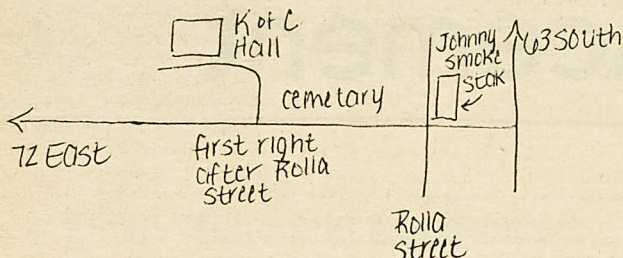 K of C
Hall
Johnny
smoke
stak
63 South
cemetary
72 East
first right
after Rolla
street
Rolla
street